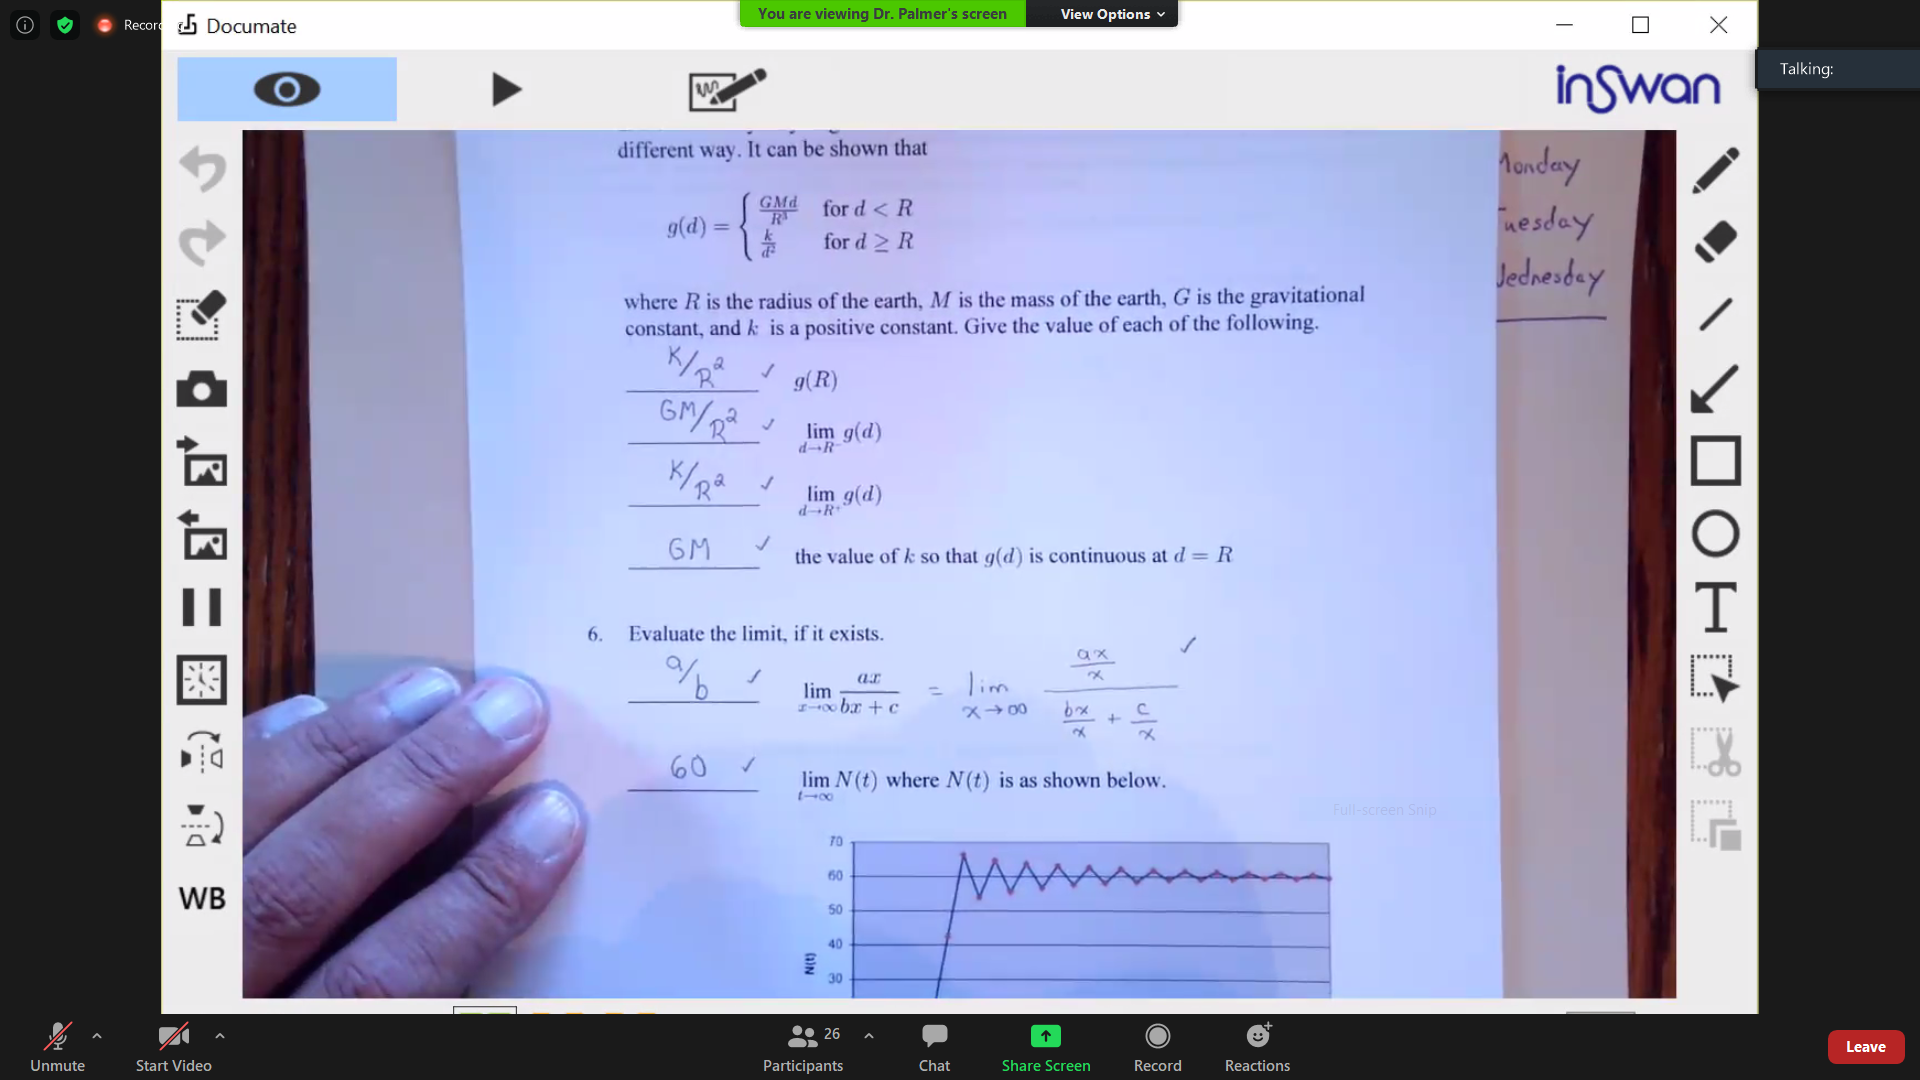 You are viewing Dr. Palmer's screen
View Options
Documate
Talking:
inSwan
different way. It can be shown that
g(d) = { GMd/R³ for d < R
k/d² for d ≥ R
where R is the radius of the earth, M is the mass of the earth, G is the gravitational
constant, and k is a positive constant. Give the value of each of the following.
K/R² ✓ g(R)
GM/R² ✓ lim d→R⁻ g(d)
K/R² ✓ lim d→R⁺ g(d)
GM ✓ the value of k so that g(d) is continuous at d = R
6. Evaluate the limit, if it exists.
a/b ✓ lim x→∞ ax/(bx + c) = lim x→∞ (ax/x)/(bx/x + c/x) ✓
60 ✓ lim t→∞ N(t) where N(t) is as shown below.
Full-screen Snip
70
60
50
40
30
N(t)
Monday
Tuesday
Wednesday
T
WB
Unmute
Start Video
26
Participants
Chat
Share Screen
Record
Reactions
Leave